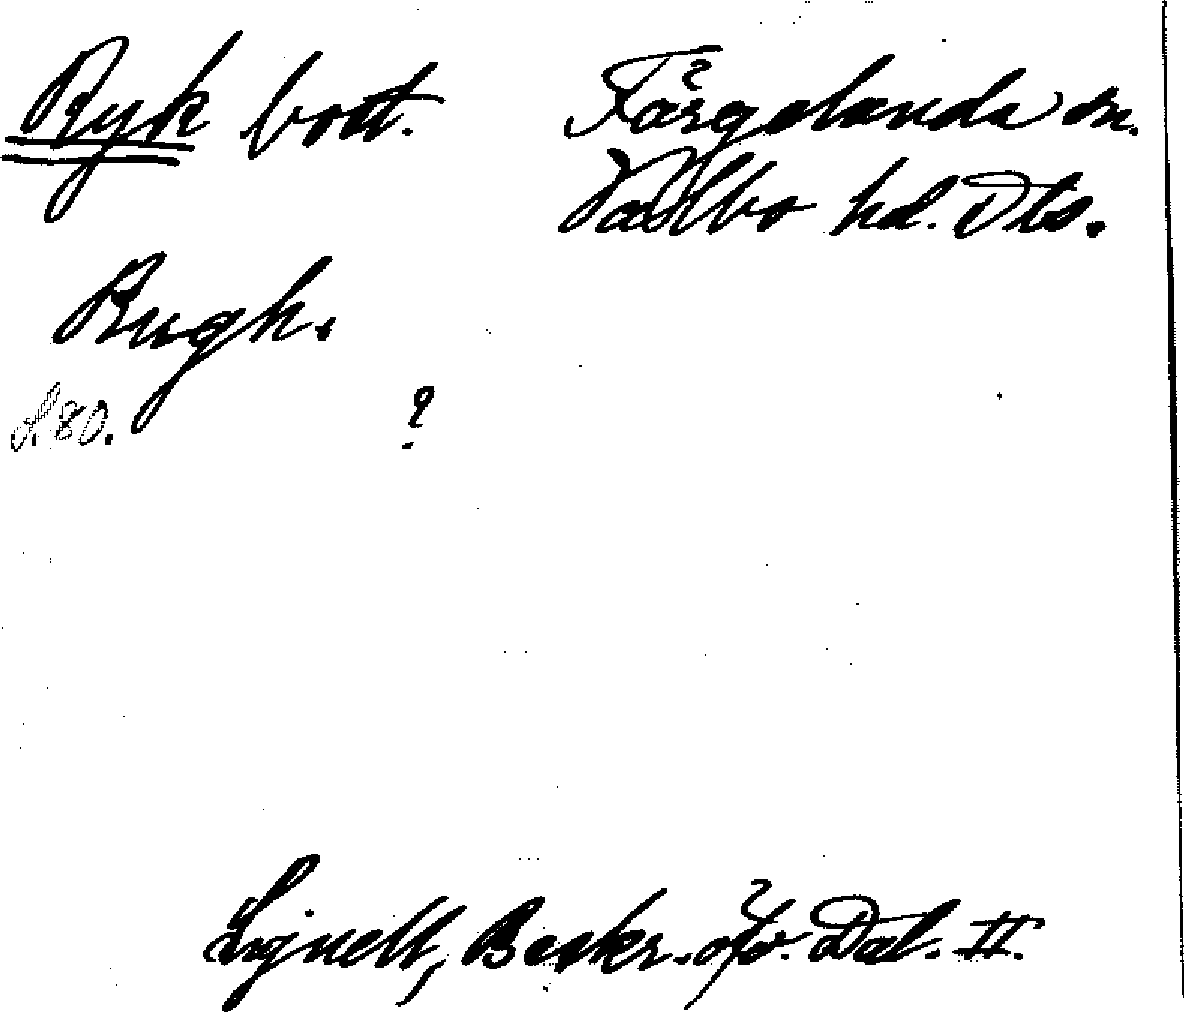 Ryk bott. Färgelanda sn.
Valbo hd. Dls.
Rugk.
s. 80. ?
Lignell, Beskr. öfv. Dal. II.